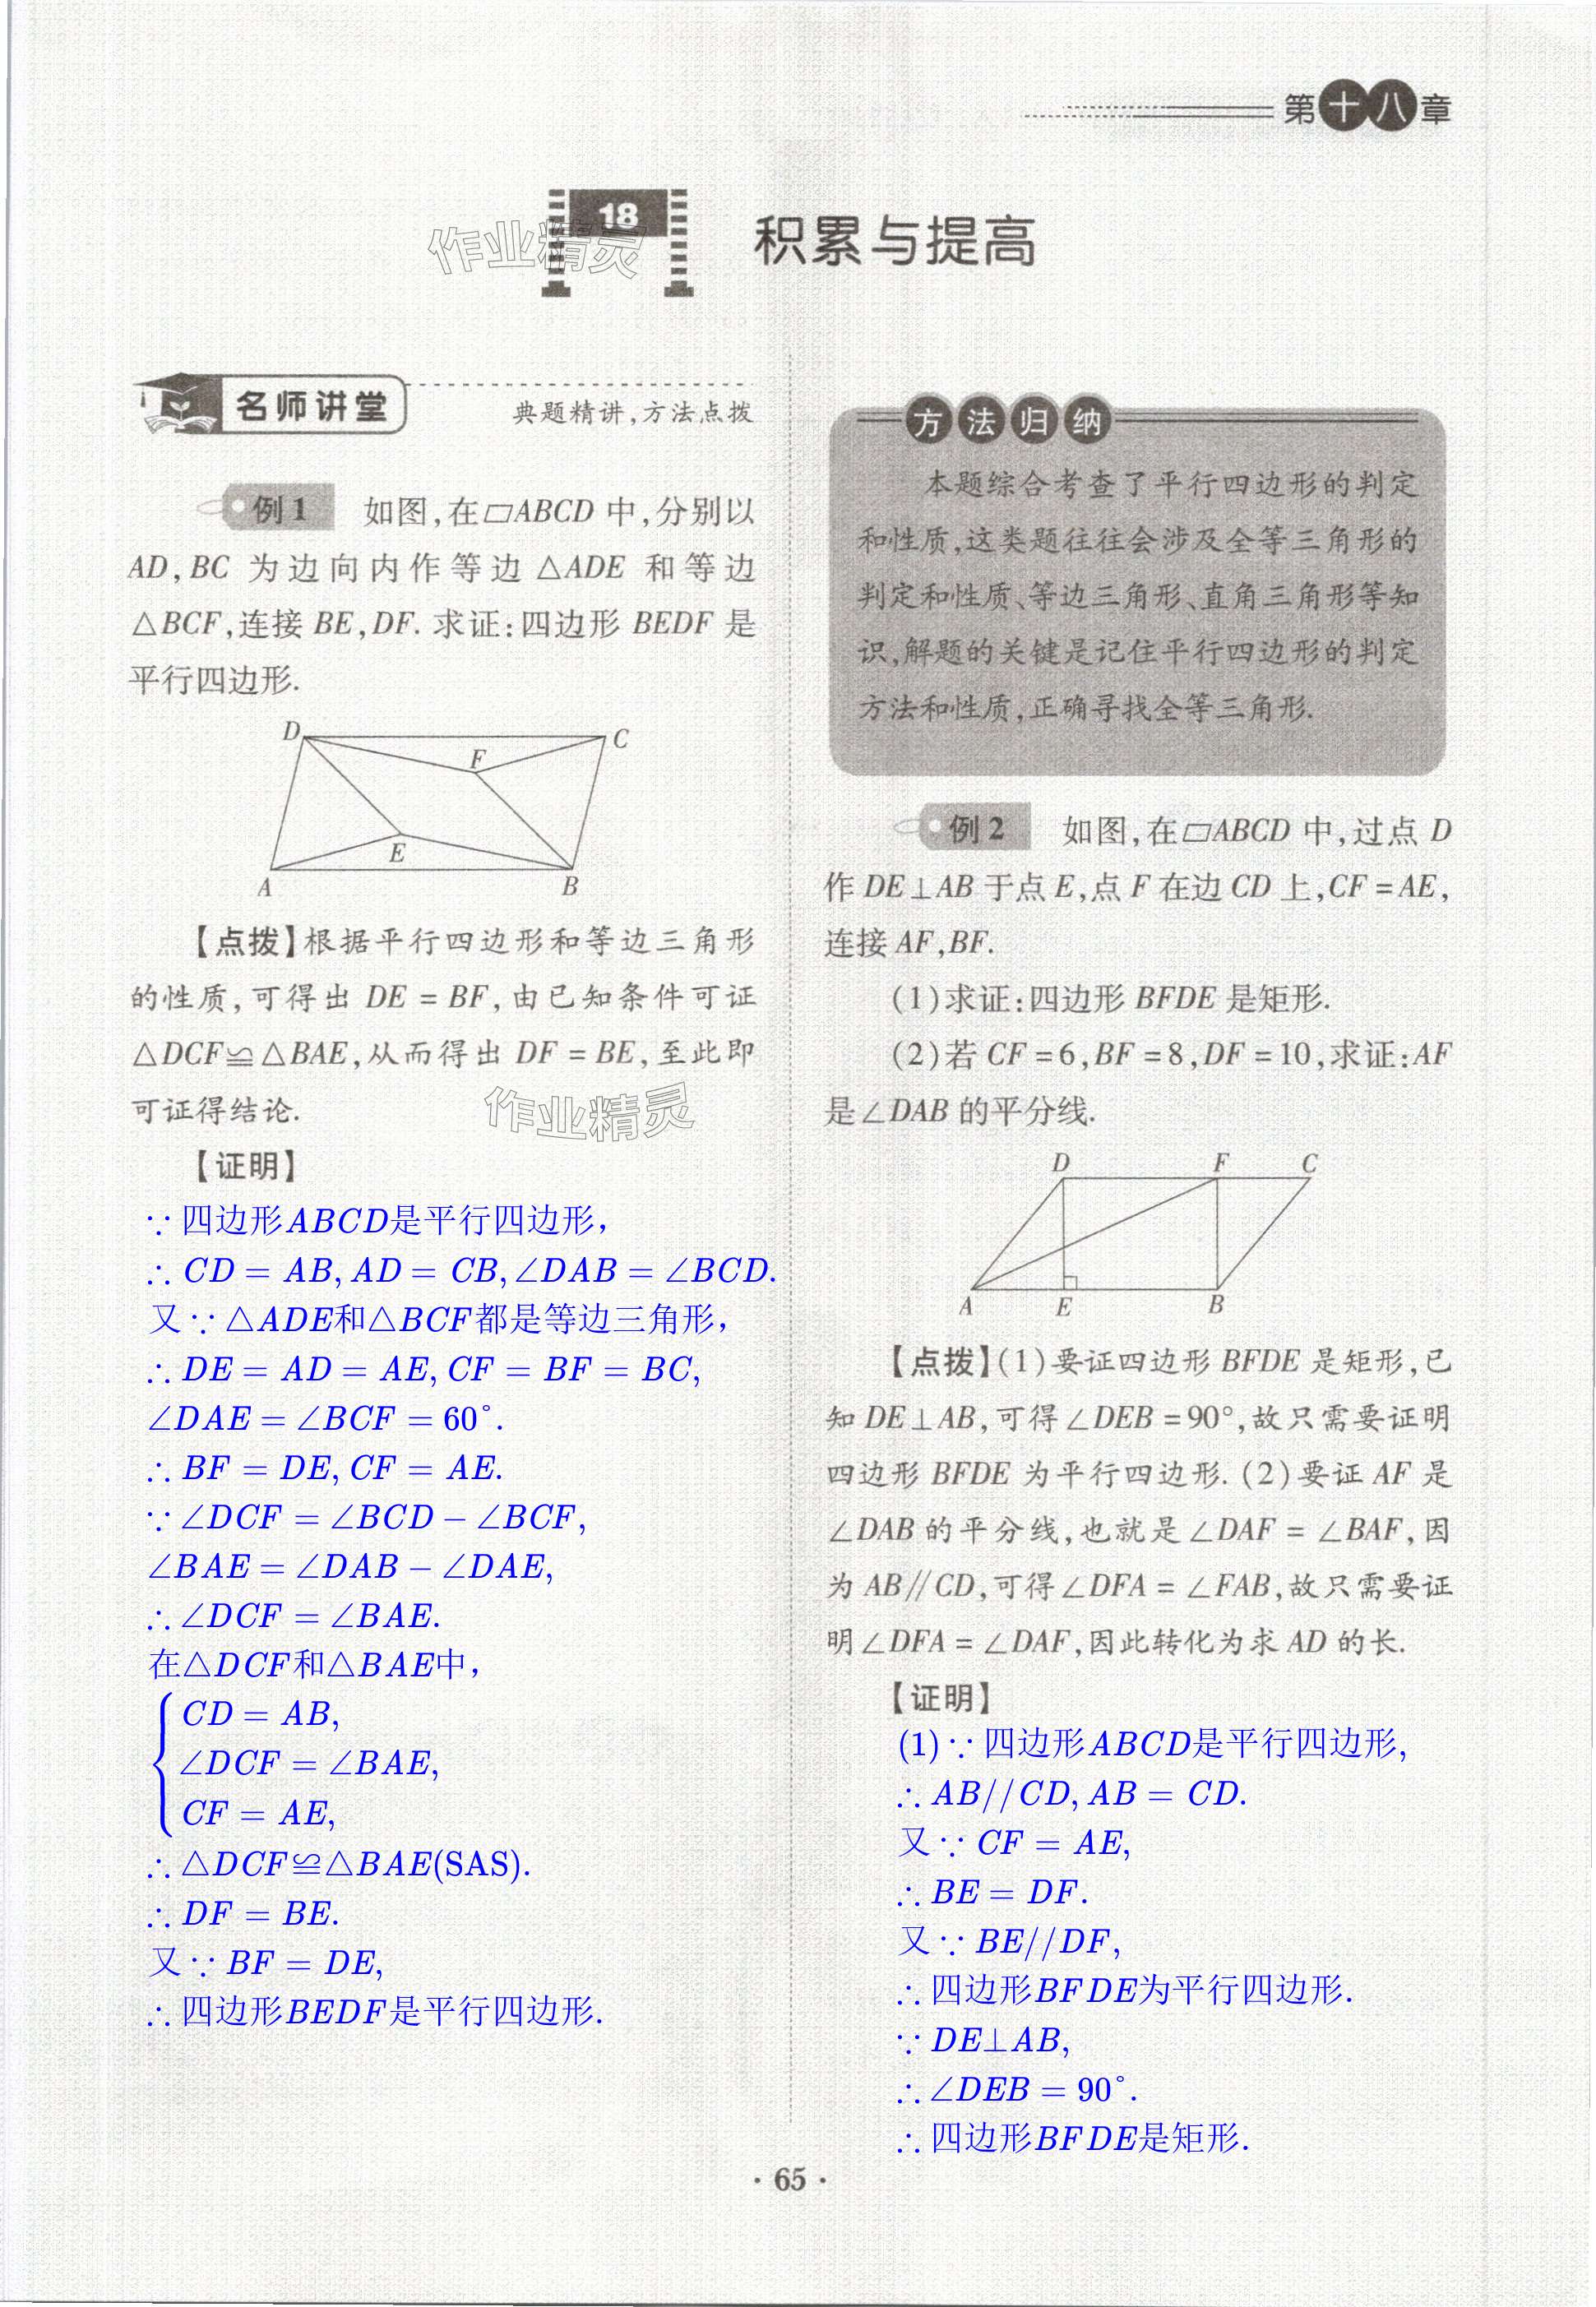 第十八章
18
积累与提高
作业精灵
名师讲堂
典题精讲,方法点拨
例1 如图,在▱ABCD 中,分别以
AD,BC 为边向内作等边 △ADE 和等边
△BCF,连接 BE,DF. 求证:四边形 BEDF 是
平行四边形.
D
C
F
E
A
B
【点拨】根据平行四边形和等边三角形
的性质,可得出 DE = BF,由已知条件可证
△DCF≌△BAE,从而得出 DF = BE,至此即
可证得结论.
作业精灵
【证明】
∵ 四边形ABCD是平行四边形,
∴ CD = AB, AD = CB, ∠DAB = ∠BCD.
又∵ △ADE和△BCF都是等边三角形,
∴ DE = AD = AE, CF = BF = BC,
∠DAE = ∠BCF = 60°.
∴ BF = DE, CF = AE.
∵ ∠DCF = ∠BCD − ∠BCF,
∠BAE = ∠DAB − ∠DAE,
∴ ∠DCF = ∠BAE.
在△DCF和△BAE中,
{ CD = AB,
∠DCF = ∠BAE,
CF = AE,
∴ △DCF≌△BAE(SAS).
∴ DF = BE.
又∵ BF = DE,
∴ 四边形BEDF是平行四边形.
方法归纳
本题综合考查了平行四边形的判定
和性质,这类题往往会涉及全等三角形的
判定和性质、等边三角形、直角三角形等知
识,解题的关键是记住平行四边形的判定
方法和性质,正确寻找全等三角形.
例2 如图,在▱ABCD 中,过点 D
作 DE⊥AB 于点 E,点 F 在边 CD 上,CF = AE,
连接 AF,BF.
(1)求证:四边形 BFDE 是矩形.
(2)若 CF = 6,BF = 8,DF = 10,求证:AF
是∠DAB 的平分线.
D
F
C
A
E
B
【点拨】(1)要证四边形 BFDE 是矩形,已
知 DE⊥AB,可得∠DEB = 90°,故只需要证明
四边形 BFDE 为平行四边形. (2)要证 AF 是
∠DAB 的平分线,也就是∠DAF = ∠BAF,因
为 AB∥CD,可得∠DFA = ∠FAB,故只需要证
明∠DFA = ∠DAF,因此转化为求 AD 的长.
【证明】
(1)∵ 四边形ABCD是平行四边形,
∴ AB//CD, AB = CD.
又∵ CF = AE,
∴ BE = DF.
又∵ BE//DF,
∴ 四边形BFDE为平行四边形.
∵ DE⊥AB,
∴ ∠DEB = 90°.
∴ 四边形BFDE是矩形.
· 65 ·